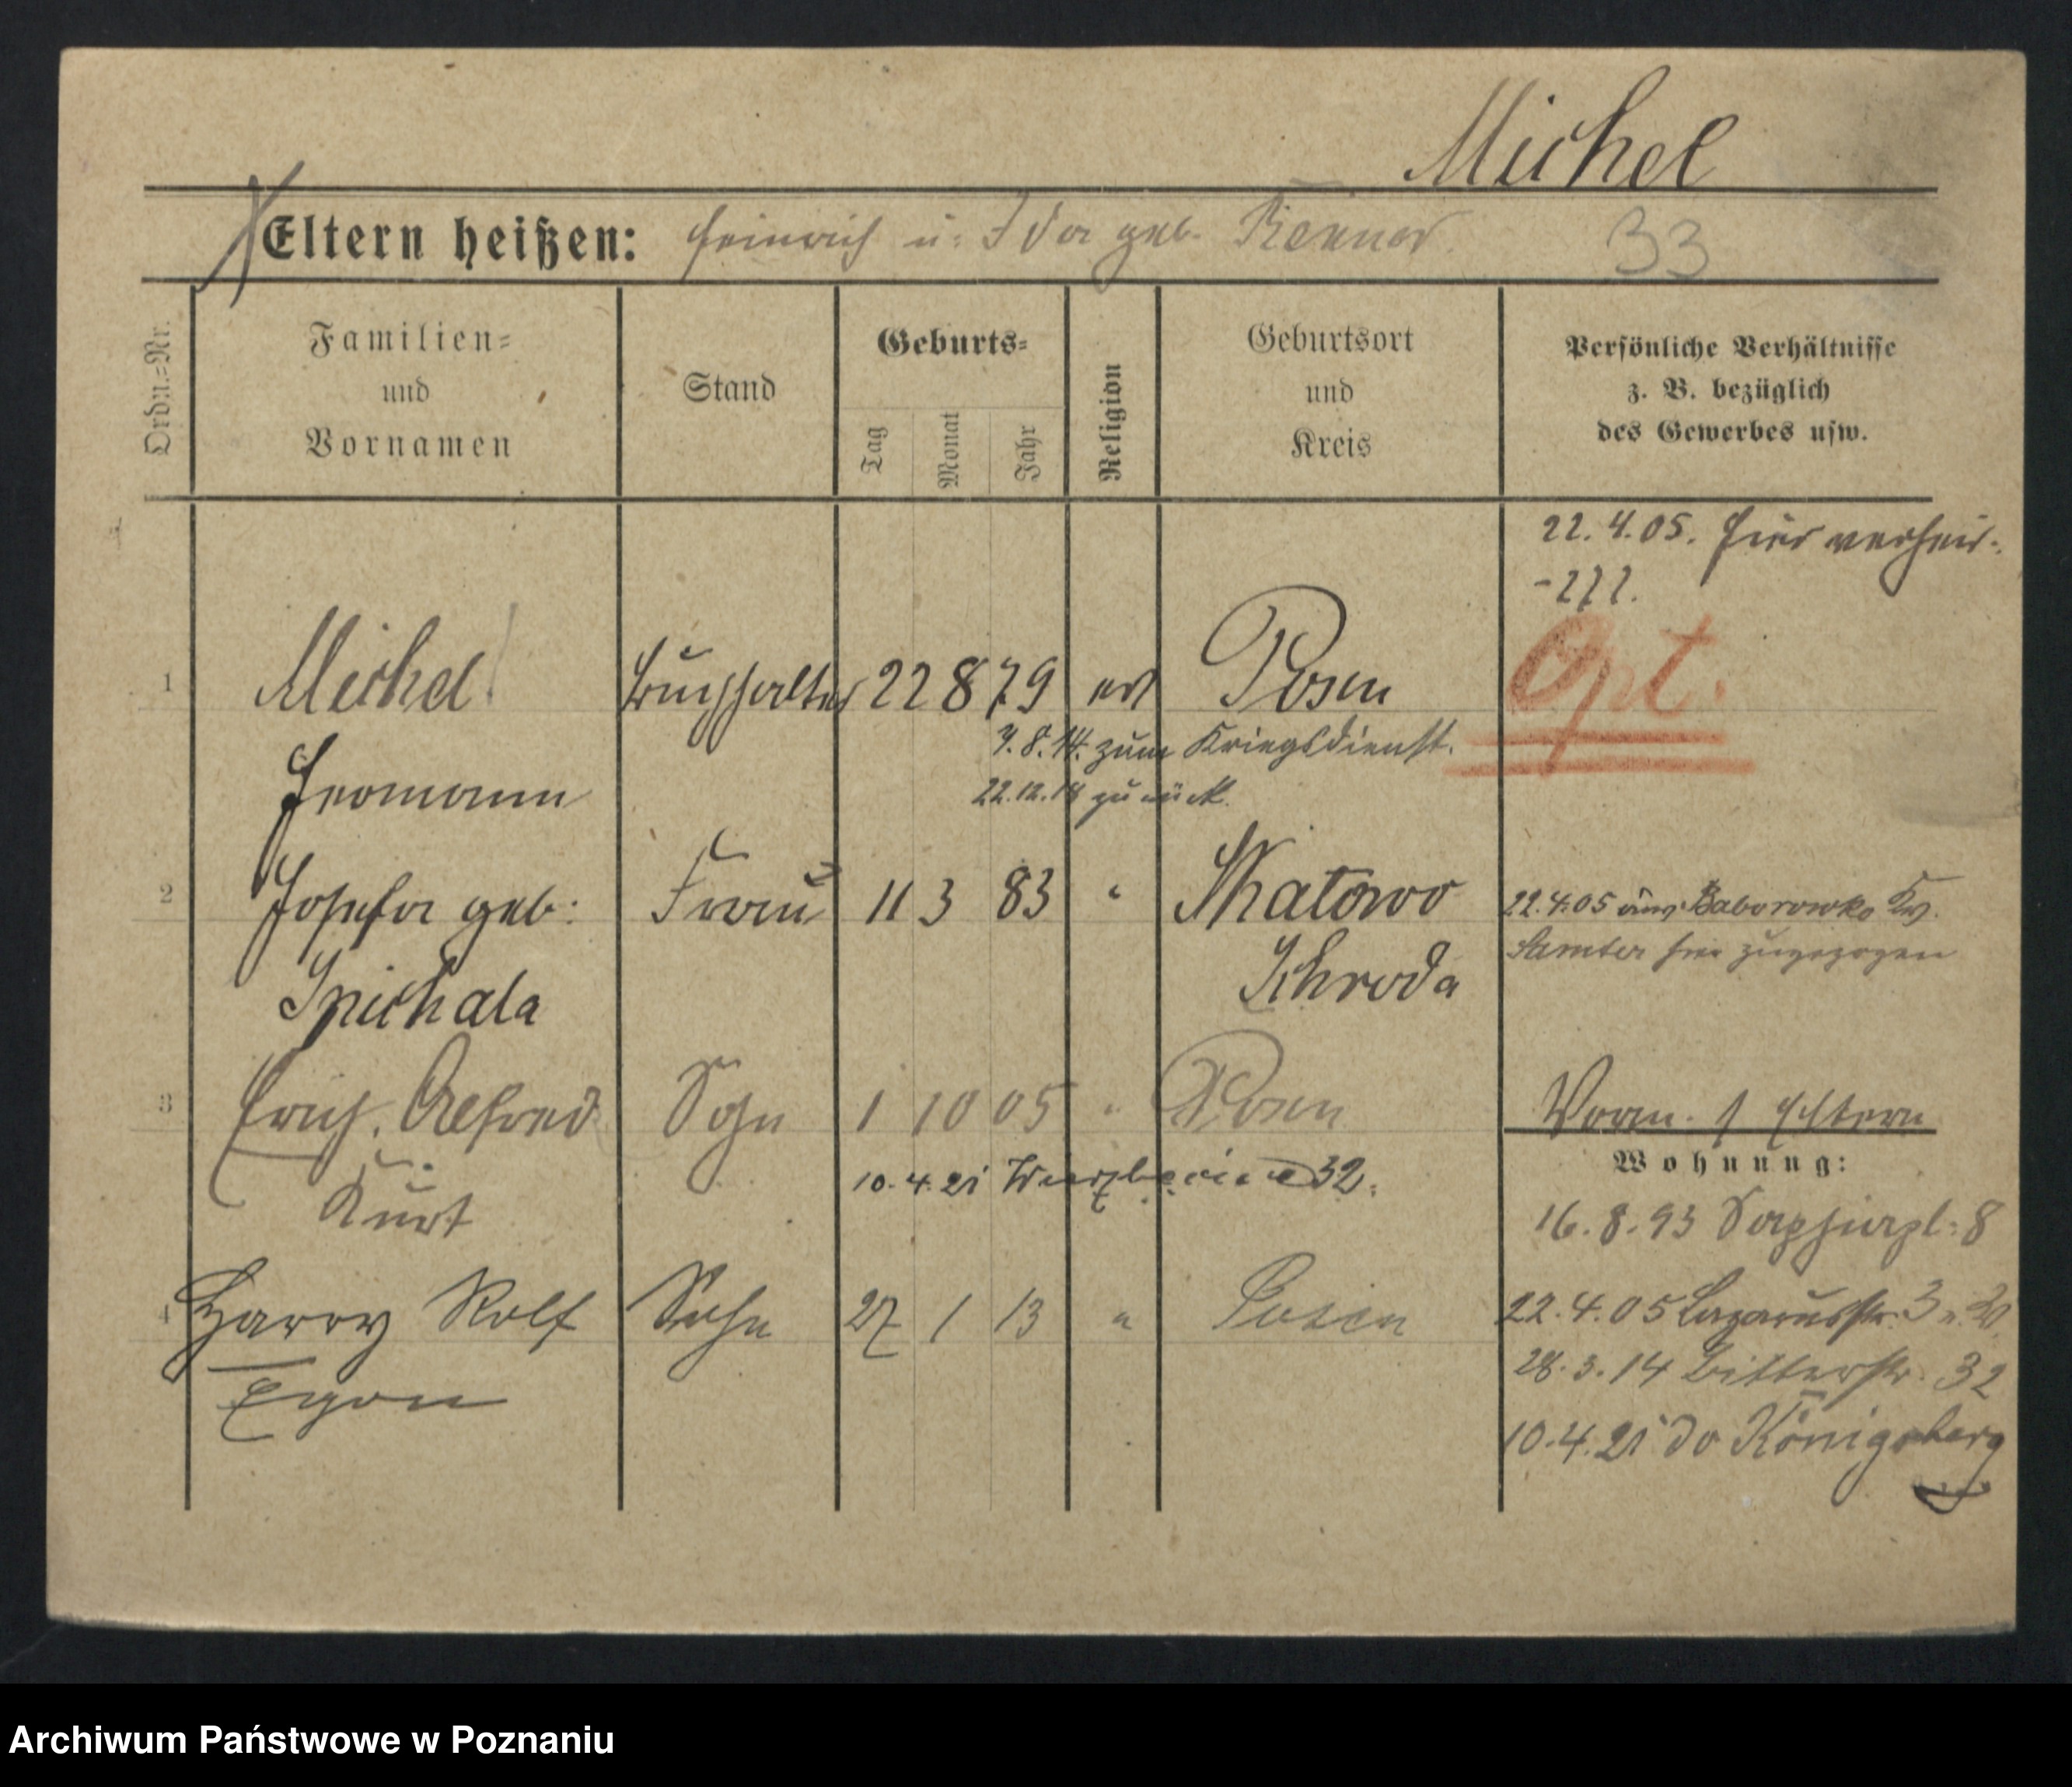 Michel
Eltern heißen: Heinrich u. Ida geb. Renner 33
Ordn.-Nr.
Familien- und Vornamen
Stand
Geburts-
Tag Monat Jahr
Religion
Geburtsort und Kreis
Persönliche Verhältnisse z. B. bezüglich des Gewerbes usw.
22.4.05. hier verheir.
Opt.
1 Michel Buchhalter 22 8 79 ev Posen
Hermann
7.8.14. zum Kriegsdienst.
22.12.18 zurück.
2 Josefa geb: Frau 11 3 83 " Skatowo
Spichala
Schroda
22.4.05 aus Baborowko Kr.
Samter hier zugezogen
3 Erich Alfred Sohn 1 10 05 " Posen
Kurt
Vorm. s Eltern
10.4.21 32.
Wohnung:
16.8.93 Sapiehapl. 8
4 Harry Rolf Sohn 27 1 13 " Posen
Egon
22.4.05 Lazarusstr. 3
28.3.14 Bitterstr. 32
10.4.21 do Königsberg
Archiwum Państwowe w Poznaniu